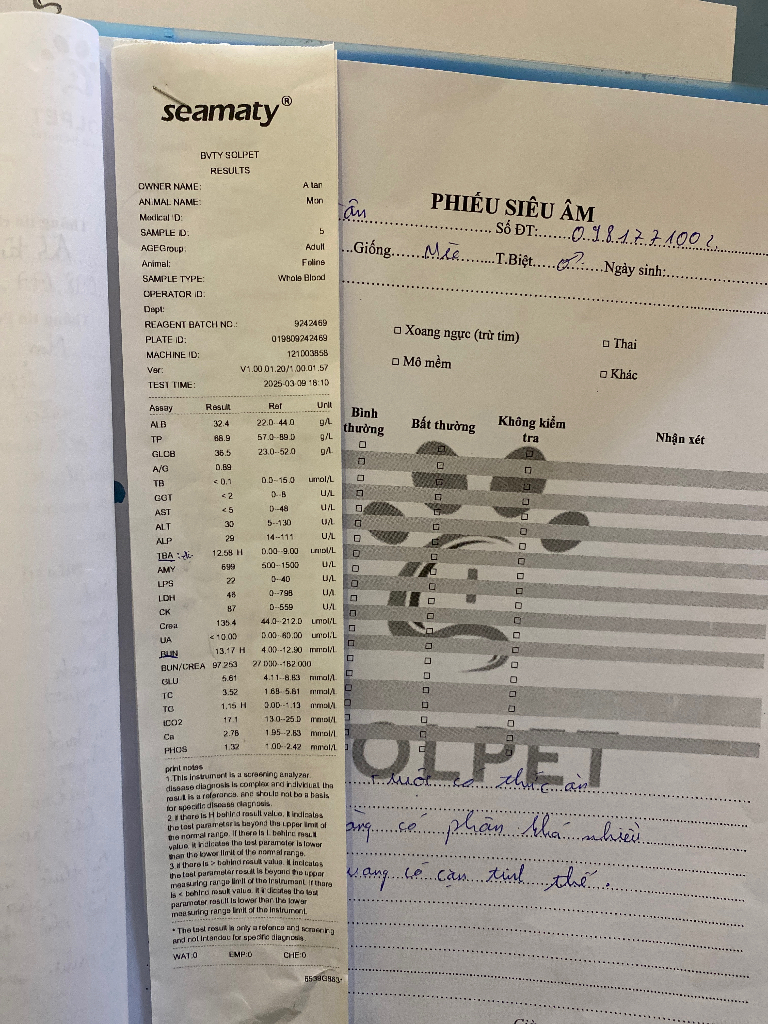 seamaty®
BVTY SOLPET
RESULTS
OWNER NAME: A tan
ANIMAL NAME: Mon
Medical ID:
SAMPLE ID: 5
AGEGroup: Adult
Animal: Feline
SAMPLE TYPE: Whole Blood
OPERATOR ID:
Dept:
REAGENT BATCH NO.: 9242469
PLATE ID: 019809242469
MACHINE ID: 121003858
Ver: V1.00.01.20/1.00.01.57
TEST TIME: 2025-03-09 18:10
Assay Result Ref Unit
ALB 32.4 22.0--44.0 g/L
TP 68.9 57.0--89.0 g/L
GLOB 36.5 23.0--52.0 g/L
A/G 0.89
TB < 0.1 0.0--15.0 umol/L
GGT < 2 0--8 U/L
AST < 5 0--48 U/L
ALT 30 5--130 U/L
ALP 29 14--111 U/L
TBA 12.58 H 0.00--9.00 umol/L
AMY 699 500--1500 U/L
LPS 22 0--40 U/L
LDH 48 0--798 U/L
CK 87 0--559 U/L
Crea 135.4 44.0--212.0 umol/L
UA < 10.00 0.00--60.00 umol/L
BUN 13.17 H 4.00--12.90 mmol/L
BUN/CREA 97.253 27.000--182.000
GLU 5.61 4.11--8.83 mmol/L
TC 3.52 1.68--5.81 mmol/L
TG 1.15 H 0.00--1.13 mmol/L
tCO2 17.1 13.0--25.0 mmol/L
Ca 2.78 1.95--2.83 mmol/L
PHOS 1.32 1.00--2.42 mmol/L
print notes
1.This instrument is a screening analyzer.
disease diagnosis is complex and individual. the
result is a reference, and should not be a basis
for specific disease diagnosis.
2. if there is H behind result value, it indicates
the test parameter is beyond the upper limit of
the normal range. if there is L behind result
value, it indicates the test parameter is lower
than the lower limit of the normal range.
3.if there is > behind result value. it indicates
the test parameter result is beyond the upper
measuring range limit of the instrument. if there
is < behind result value. it indicates the test
parameter result is lower then the lower
measuring range limit of the instrument.
* The test result is only a refence and screening
and not intended for specific diagnosis.
WAT:0 EMP:0 CHE:0
PHIẾU SIÊU ÂM
ân Số ĐT: 0981771002
Giống Mèo T.Biệt ♂ Ngày sinh:
Xoang ngực (trừ tim) Thai
Mô mềm Khác
Bình thường Bất thường Không kiểm tra Nhận xét
OLPET
ruột có thức ăn
àng có phân khá nhiều
uang có cặn tinh thể.